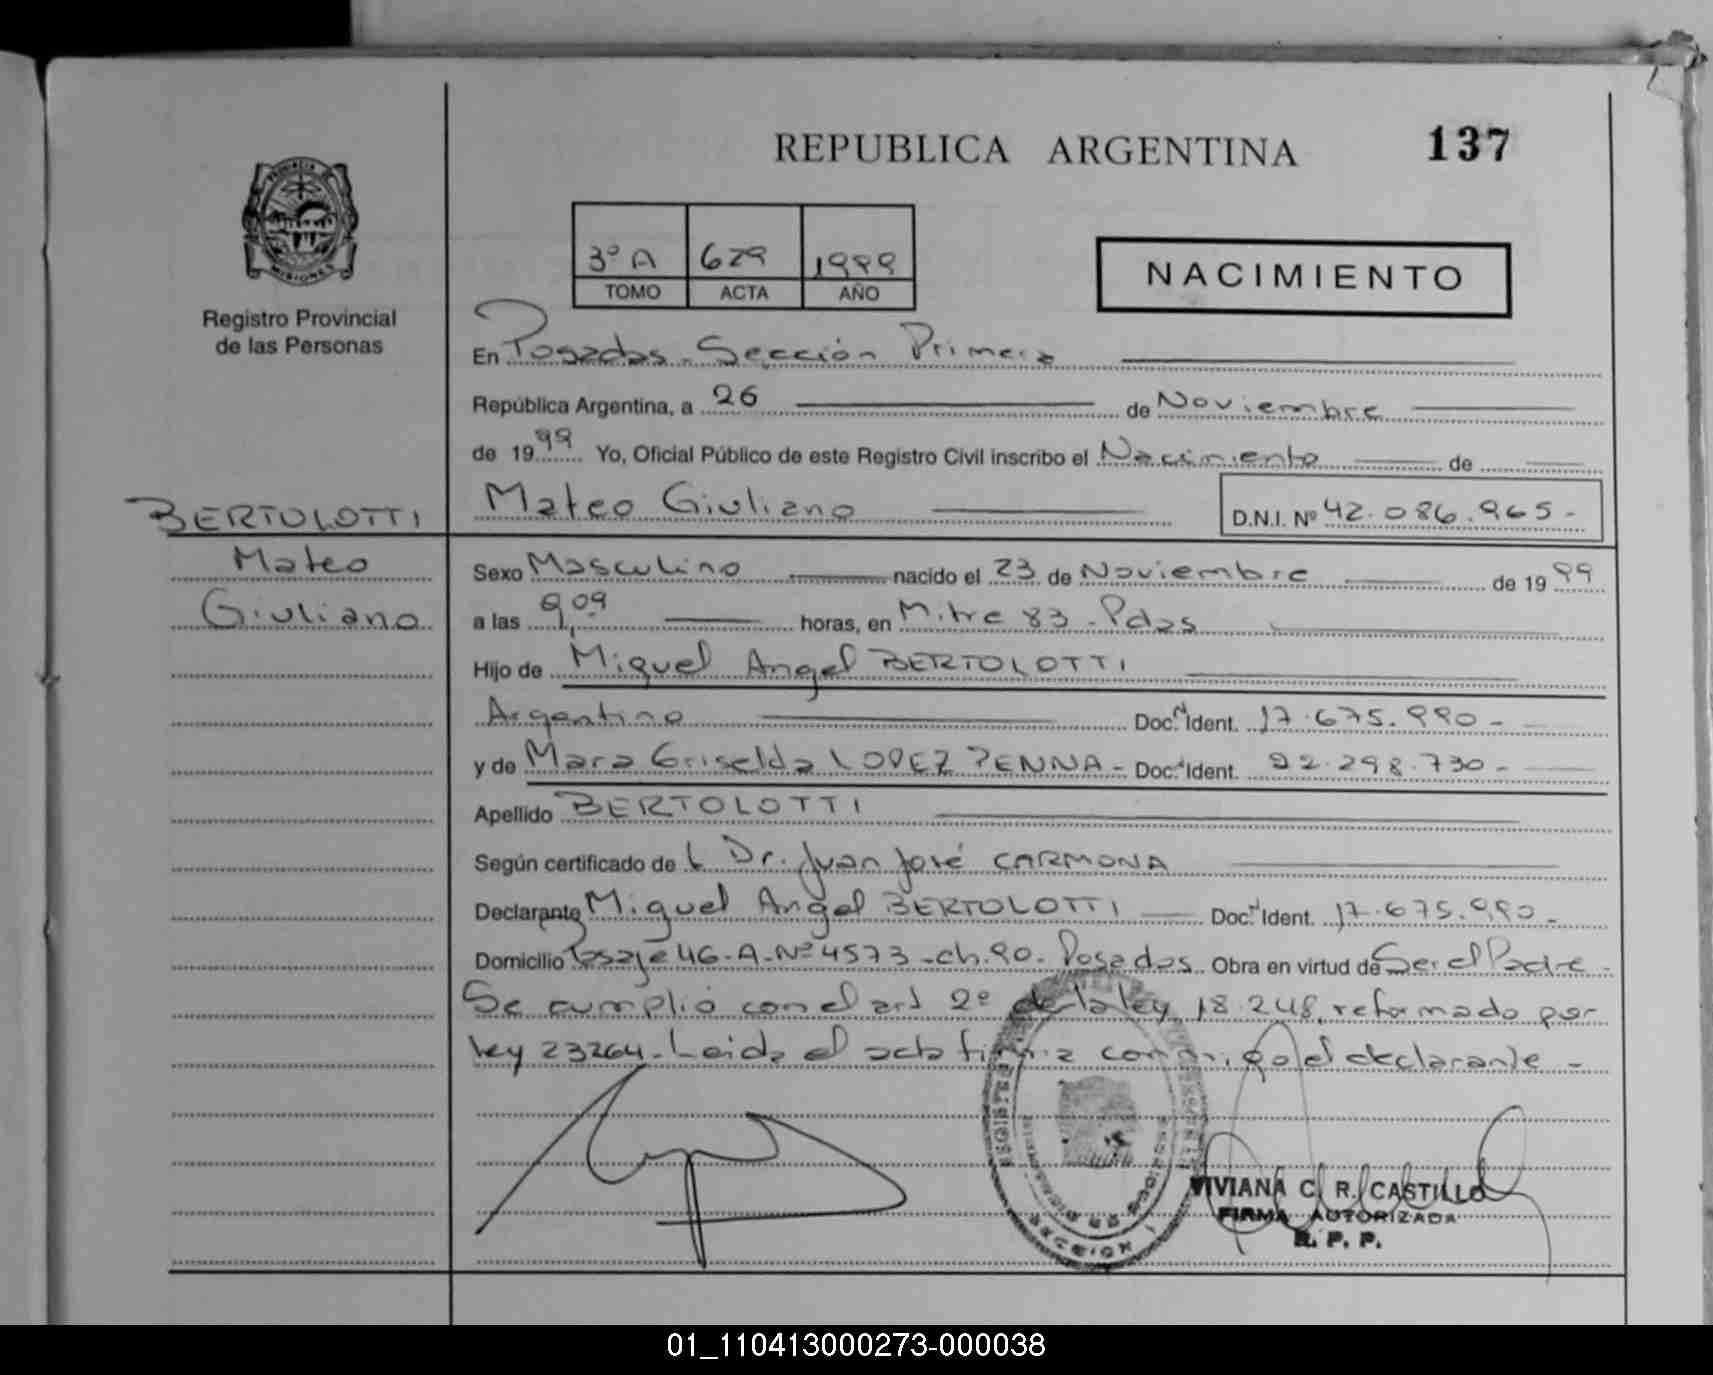 REPUBLICA ARGENTINA
137
PROVINCIA DE MISIONES
Registro Provincial
de las Personas
3º A 679 1999
TOMO ACTA AÑO
NACIMIENTO
En Posadas - Sección Primera
República Argentina, a 26 de Noviembre
de 1999 Yo, Oficial Público de este Registro Civil inscribo el Nacimiento de
BERTOLOTTI
Mateo Giuliano D.N.I. Nº 42.086.965-
Mateo
Giuliano
Sexo Masculino nacido el 23 de Noviembre de 1999
a las 9,09 horas, en Mitre 83 - Pdas
Hijo de Miguel Angel BERTOLOTTI
Argentino Doc. Ident. 17.675.990-
y de Mara Griselda LOPEZ PENNA - Doc. Ident. 22.298.730-
Apellido BERTOLOTTI
Según certificado de l Dr. Juan José CARMONA
Declarante Miguel Angel BERTOLOTTI Doc. Ident. 17.675.990-
Domicilio Pasaje 46-A-Nº 4573-ch.90- Posadas Obra en virtud de Ser el Padre-
Se cumplió con el art 2º de la ley 18.248, reformado por
ley 23264- Leida el acta firma conmigo el declarante -
SECCION 1
VIVIANA C. R. CASTILLO
FIRMA AUTORIZADA
R. P. P.
01_110413000273-000038